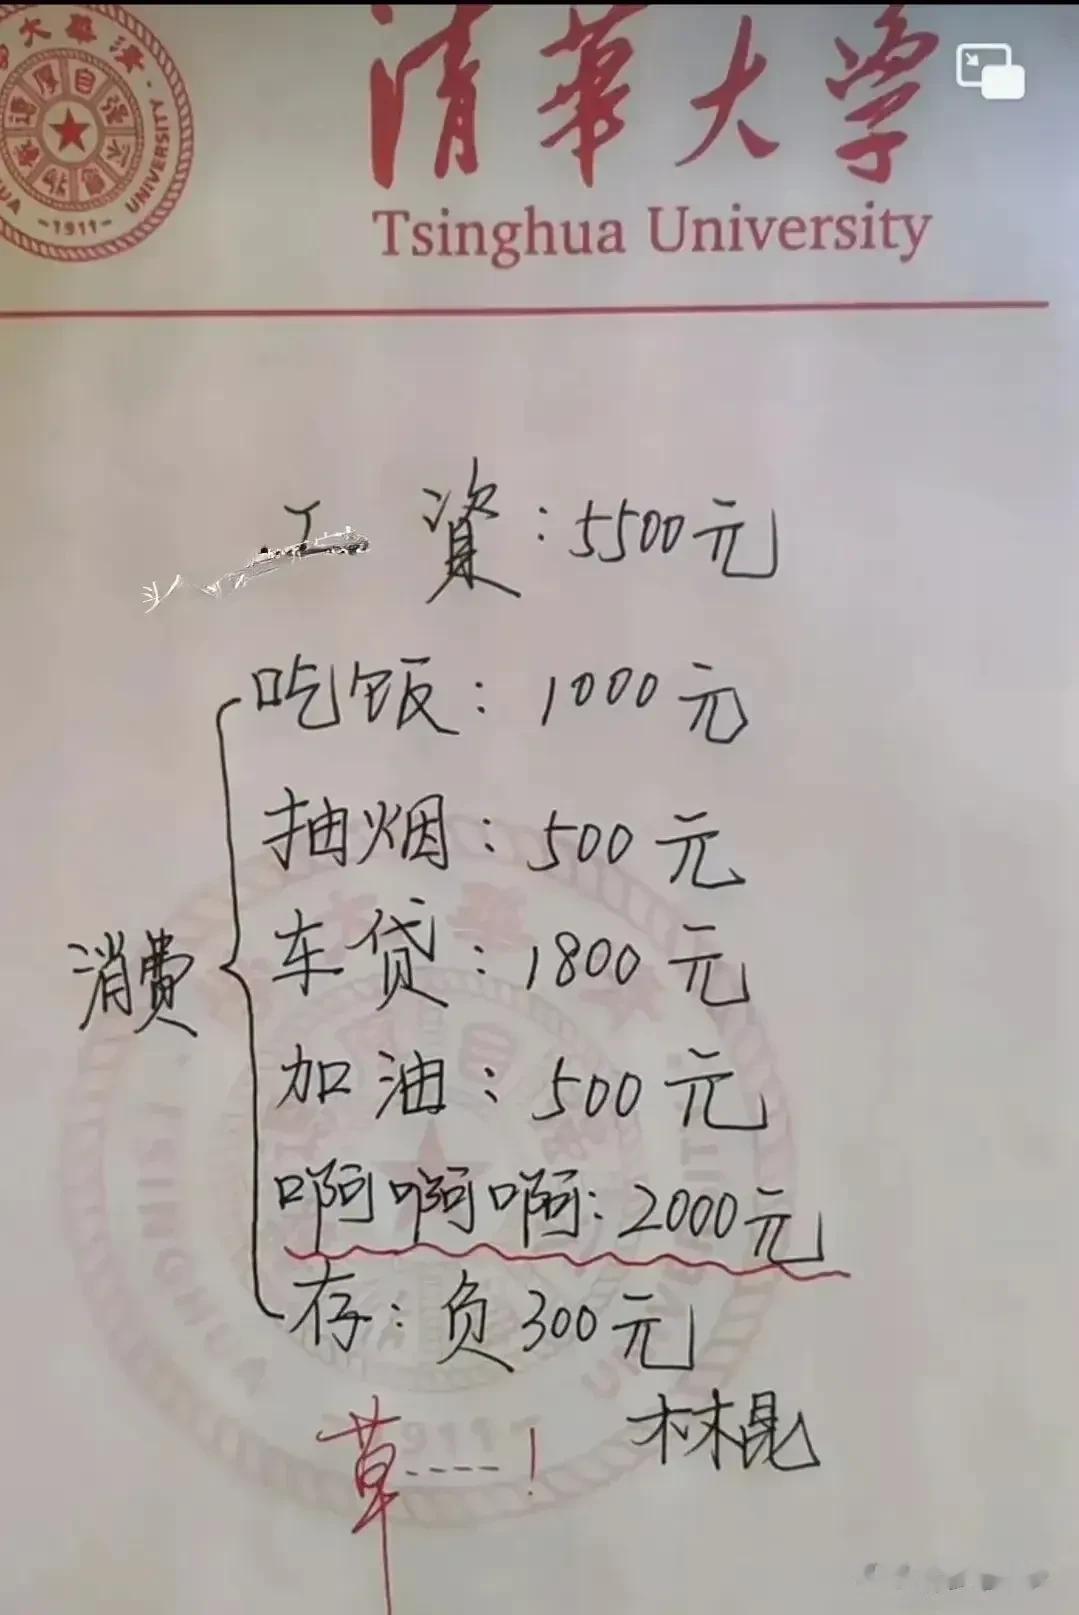 清華大学
Tsinghua University
UNIVERSITY
-1911-
工資：5500元
吃饭：1000元
抽烟：500元
车贷：1800元
消费
加油：500元
啊啊啊：2000元
存：负300元
林棍
草----！